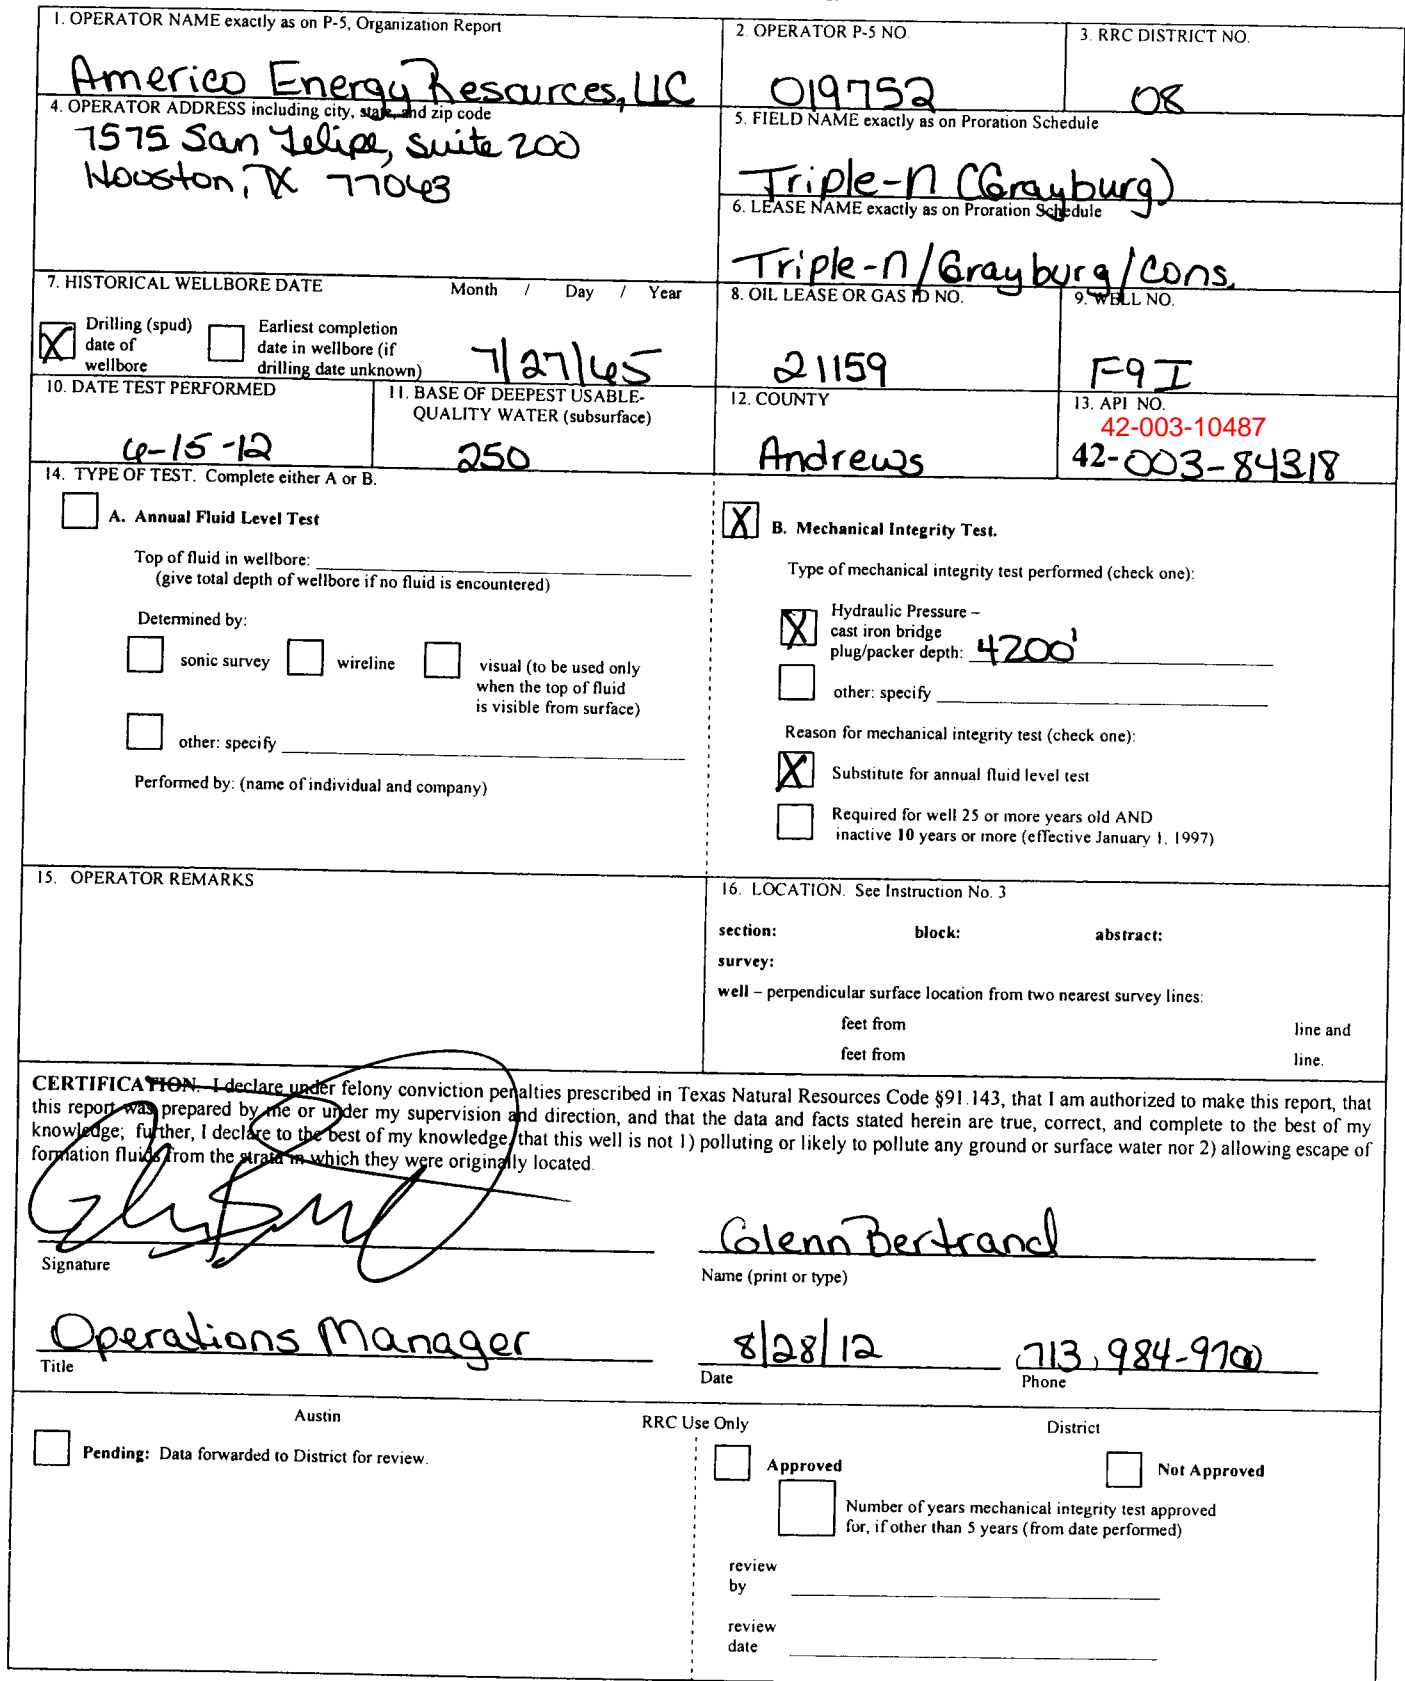 1. OPERATOR NAME exactly as on P-5, Organization Report
Americo Energy Resources, LLC
2. OPERATOR P-5 NO.
019752
3. RRC DISTRICT NO.
08
4. OPERATOR ADDRESS including city, state, and zip code
7575 San Felipe, Suite 200
Houston, TX 77063
5. FIELD NAME exactly as on Proration Schedule
Triple-N (Grayburg)
6. LEASE NAME exactly as on Proration Schedule
Triple-N/Grayburg/Cons.
7. HISTORICAL WELLBORE DATE
Month / Day / Year
X Drilling (spud)
date of
wellbore
Earliest completion
date in wellbore (if
drilling date unknown)
7/27/65
8. OIL LEASE OR GAS ID NO.
21159
9. WELL NO.
F9I
10. DATE TEST PERFORMED
6-15-12
11. BASE OF DEEPEST USABLE-
QUALITY WATER (subsurface)
250
12. COUNTY
Andrews
13. API NO.
42-003-10487
42-003-84318
14. TYPE OF TEST. Complete either A or B.
A. Annual Fluid Level Test
Top of fluid in wellbore:
(give total depth of wellbore if no fluid is encountered)
Determined by:
sonic survey
wireline
visual (to be used only
when the top of fluid
is visible from surface)
other: specify
Performed by: (name of individual and company)
X B. Mechanical Integrity Test.
Type of mechanical integrity test performed (check one):
X Hydraulic Pressure –
cast iron bridge
plug/packer depth: 4200'
other: specify
Reason for mechanical integrity test (check one):
X Substitute for annual fluid level test
Required for well 25 or more years old AND
inactive 10 years or more (effective January 1, 1997)
15. OPERATOR REMARKS
16. LOCATION. See Instruction No. 3
section: block: abstract:
survey:
well – perpendicular surface location from two nearest survey lines:
feet from line and
feet from line.
CERTIFICATION. I declare under felony conviction penalties prescribed in Texas Natural Resources Code §91.143, that I am authorized to make this report, that
this report was prepared by me or under my supervision and direction, and that the data and facts stated herein are true, correct, and complete to the best of my
knowledge; further, I declare to the best of my knowledge, that this well is not 1) polluting or likely to pollute any ground or surface water nor 2) allowing escape of
formation fluids from the strata in which they were originally located.
Signature
Glenn Bertrand
Name (print or type)
Operations Manager
Title
8/28/12
Date
(713) 984-9700
Phone
Austin
RRC Use Only
District
Pending: Data forwarded to District for review.
Approved
Not Approved
Number of years mechanical integrity test approved
for, if other than 5 years (from date performed)
review
by
review
date